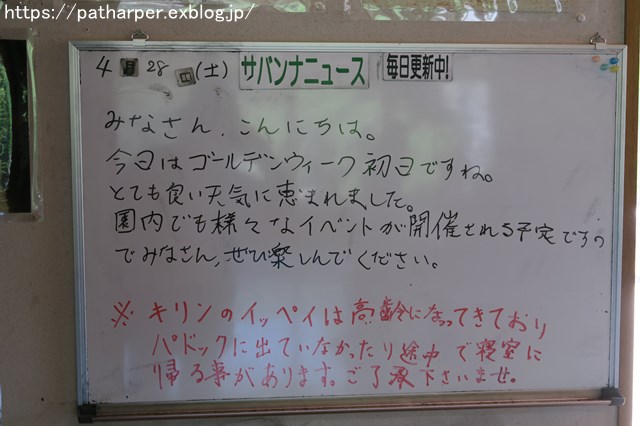 https://patharper.exblog.jp/
4月28日(土) サバンナニュース 毎日更新中!
みなさん、こんにちは。
今日はゴールデンウィーク初日ですね。
とても良い天気に恵まれました。
園内でも様々なイベントが開催される予定ですの
でみなさん、ぜひ楽しんでください。
※キリンのイッペイは高齢になってきており
パドックに出ていなかったり途中で寝室に
帰る事があります。ご了承下さいませ。